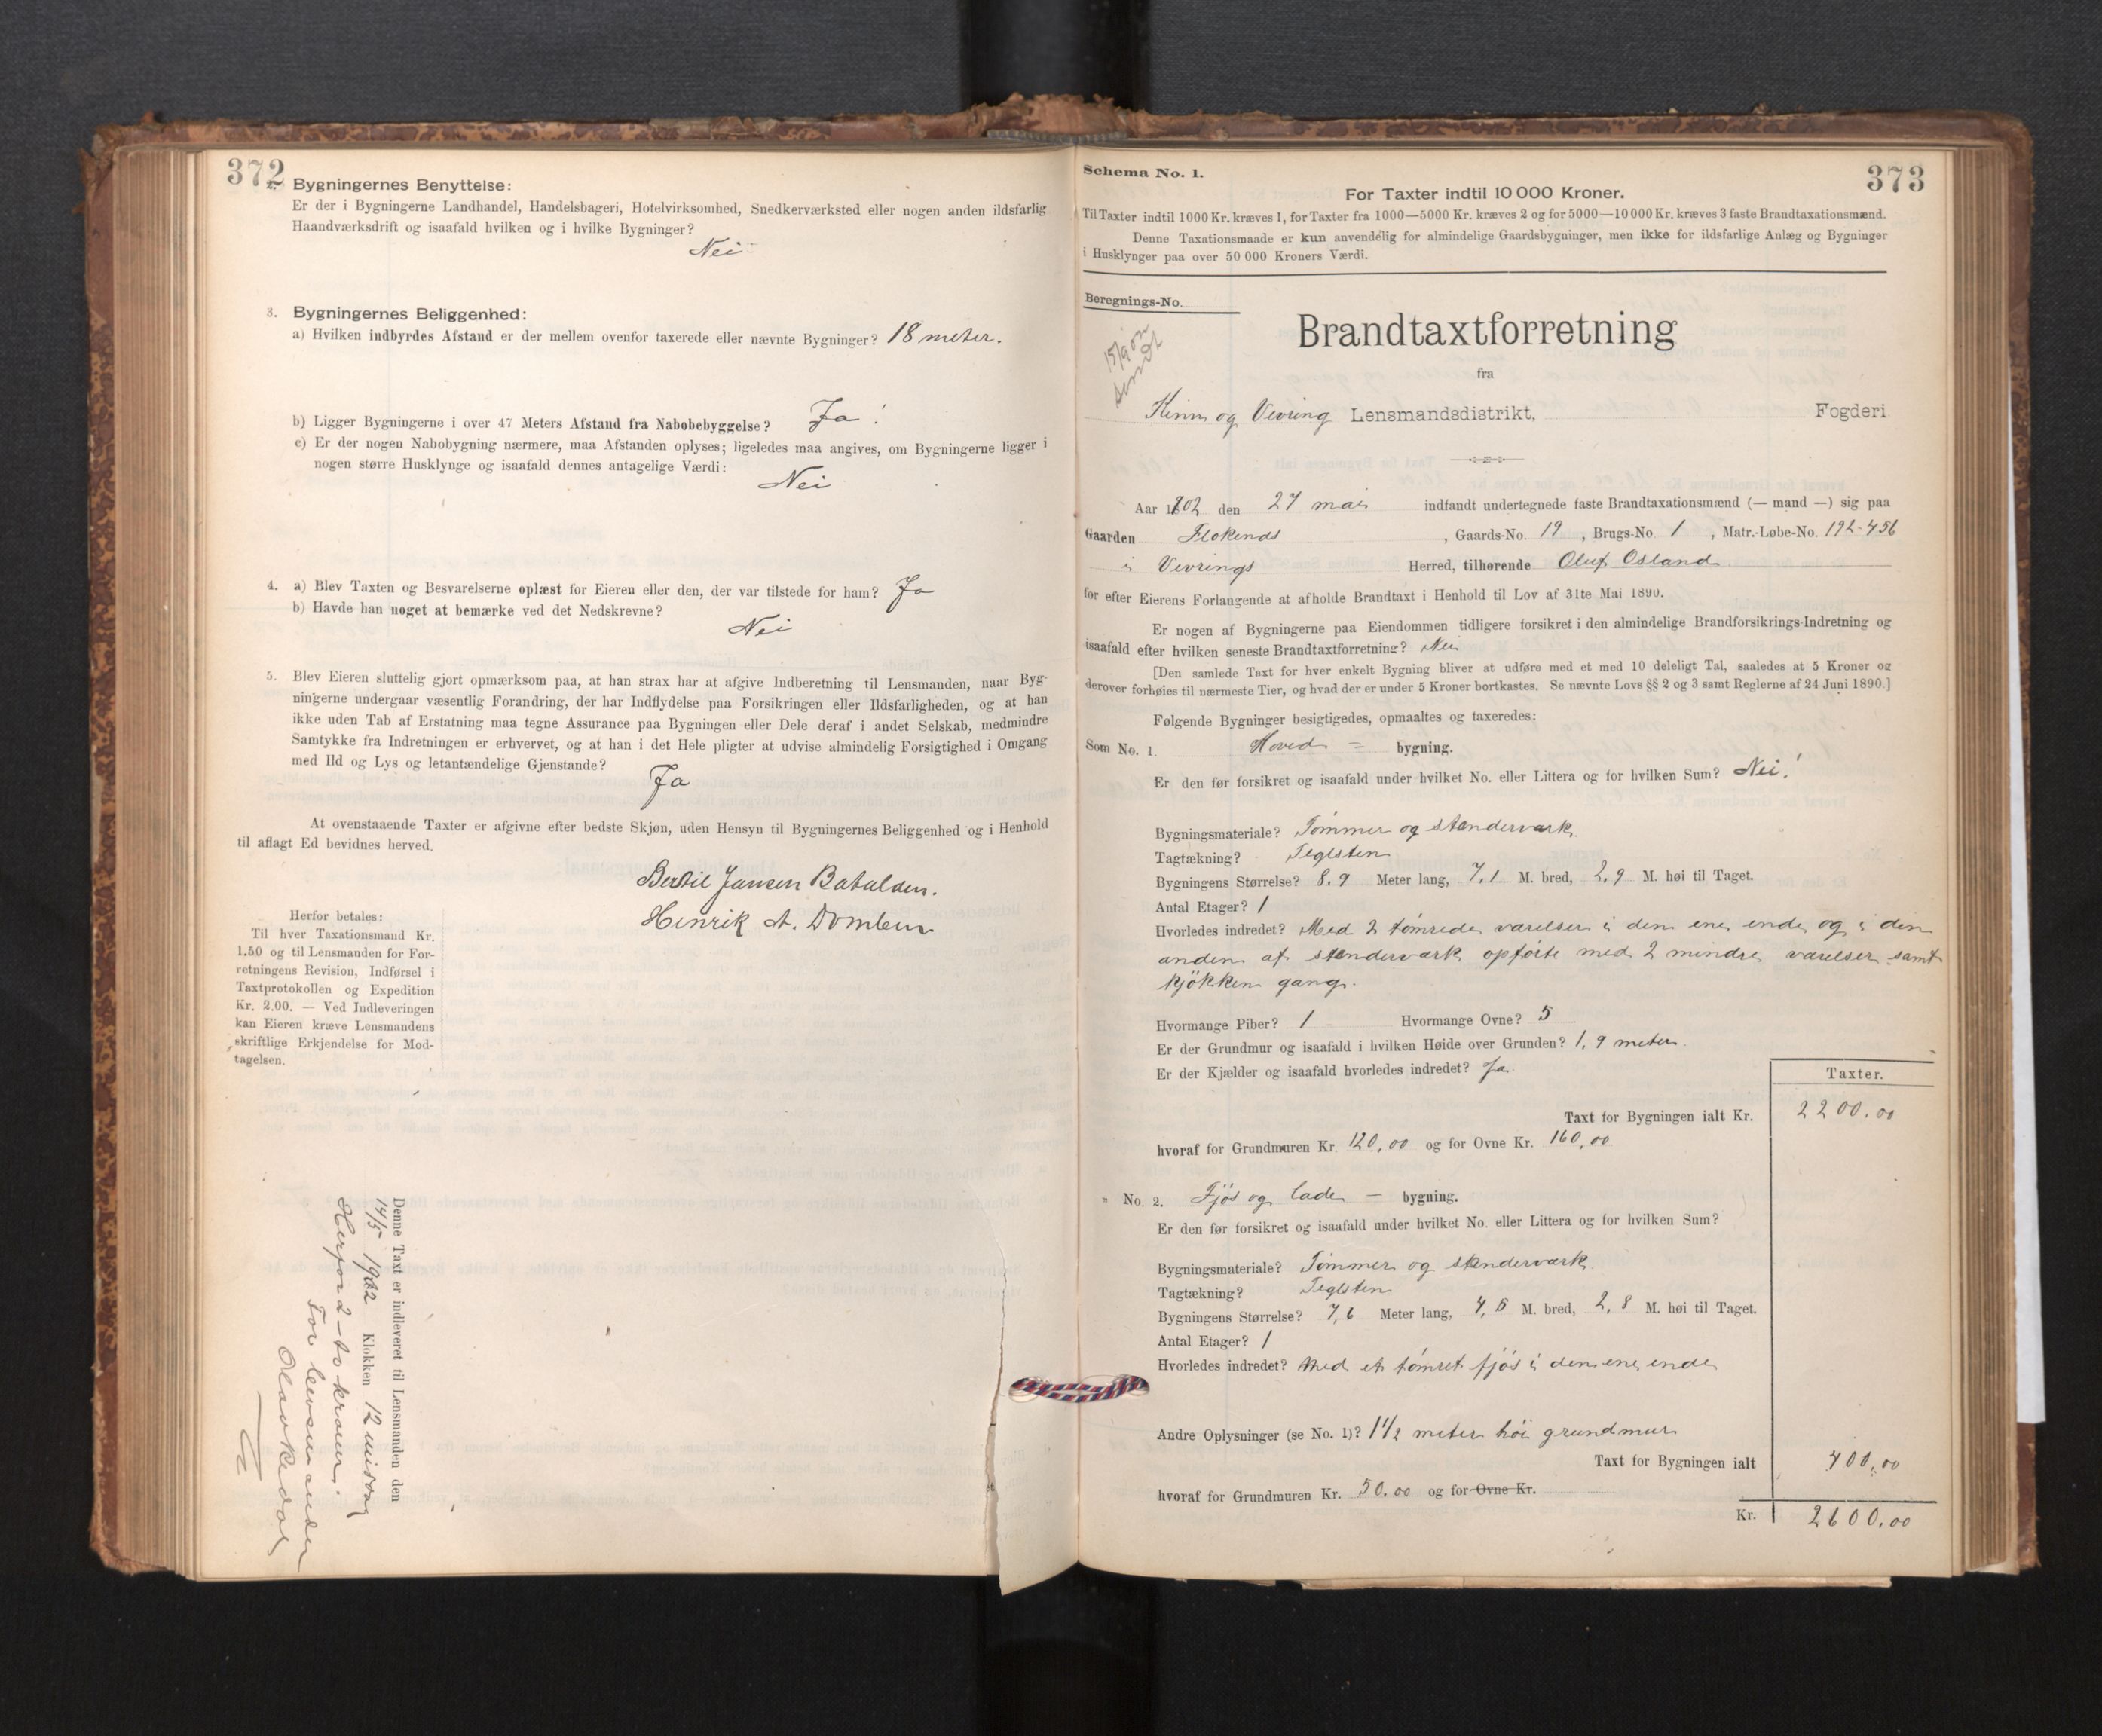 372
2. Bygningernes Benyttelse:
Er der i Bygningerne Landhandel, Handelsbageri, Hotelvirksomhed, Snedkerværksted eller nogen anden ildsfarlig
Haandværksdrift og isaafald hvilken og i hvilke Bygninger?
Nei
3. Bygningernes Beliggenhed:
a) Hvilken indbyrdes Afstand er der mellem ovenfor taxerede eller nævnte Bygninger? 18 meter.
b) Ligger Bygningerne i over 47 Meters Afstand fra Nabobebyggelse? Ja!
c) Er der nogen Nabobygning nærmere, maa Afstanden oplyses; ligeledes maa angives, om Bygningerne ligger i
nogen større Husklynge og isaafald dennes antagelige Værdi:
Nei
4. a) Blev Taxten og Besvarelserne oplæst for Eieren eller den, der var tilstede for ham? Ja
b) Havde han noget at bemærke ved det Nedskrevne?
Nei
5. Blev Eieren sluttelig gjort opmærksom paa, at han strax har at afgive Indberetning til Lensmanden, naar Byg-
ningerne undergaar væsentlig Forandring, der har Indflydelse paa Forsikringen eller Ildsfarligheden, og at han
ikke uden Tab af Erstatning maa tegne Assurance paa Bygningen eller Dele deraf i andet Selskab, medmindre
Samtykke fra Indretningen er erhvervet, og at han i det Hele pligter at udvise almindelig Forsigtighed i Omgang
med Ild og Lys og letantændelige Gjenstande?
Ja
At ovenstaaende Taxter er afgivne efter bedste Skjøn, uden Hensyn til Bygningernes Beliggenhed og i Henhold
til aflagt Ed bevidnes herved.
Bertil Jansen Batalden.
Henrik A. Domben
Herfor betales:
Til hver Taxationsmand Kr.
1.50 og til Lensmanden for For-
retningens Revision, Indførsel i
Taxtprotokollen og Expedition
Kr. 2.00. — Ved Indleveringen
kan Eieren kræve Lensmandens
skriftlige Erkjendelse for Mod-
tagelsen.
Denne Taxt er indleveret til Lensmanden den
14/5 1902 Klokken 12 middag
Herfor 2 - to kroner.
For lensmanden
373
Schema No. 1.
For Taxter indtil 10 000 Kroner.
Til Taxter indtil 1000 Kr. kræves 1, for Taxter fra 1000—5000 Kr. kræves 2 og for 5000—10 000 Kr. kræves 3 faste Brandtaxationsmænd.
Denne Taxationsmaade er kun anvendelig for almindelige Gaardsbygninger, men ikke for ildsfarlige Anlæg og Bygninger
i Husklynger paa over 50 000 Kroners Værdi.
Beregnings-No.
15/9 02
sendt
Brandtaxtforretning
fra
Kinn og Vevring Lensmandsdistrikt, Fogderi
Aar 1902 den 27 mai indfandt undertegnede faste Brandtaxationsmænd (— mand —) sig paa
Gaarden Flokenes, Gaards-No. 19, Brugs-No. 1, Matr.-Løbe-No. 192-456
i Vevrings Herred, tilhørende Oluf Osland
for efter Eierens Forlangende at afholde Brandtaxt i Henhold til Lov af 31te Mai 1890.
Er nogen af Bygningerne paa Eiendommen tidligere forsikret i den almindelige Brandforsikrings-Indretning og
isaafald efter hvilken seneste Brandtaxtforretning? Nei
[Den samlede Taxt for hver enkelt Bygning bliver at udføre med et med 10 deleligt Tal, saaledes at 5 Kroner og
derover forhøies til nærmeste Tier, og hvad der er under 5 Kroner bortkastes. Se nævnte Lovs §§ 2 og 3 samt Reglerne af 24 Juni 1890.]
Følgende Bygninger besigtigedes, opmaaltes og taxeredes:
Som No. 1. Hoved = bygning.
Er den før forsikret og isaafald under hvilket No. eller Littera og for hvilken Sum? Nei!
Bygningsmateriale? Tømmer og stenderværk
Tagtækning? Teglsten
Bygningens Størrelse? 8,9 Meter lang, 7,1 M. bred, 2,9 M. høi til Taget.
Antal Etager? 1
Hvorledes indredet? Med 2 tømrede værelser i den ene ende og i den
anden af stenderværk opførte med 2 mindre værelser samt
kjøkken gang.
Hvormange Piber? 1 Hvormange Ovne? 5
Er der Grundmur og isaafald i hvilken Høide over Grunden? 1,9 meter.
Er der Kjælder og isaafald hvorledes indredet? Ja
Taxter.
Taxt for Bygningen ialt Kr. 2200,00
hvoraf for Grundmuren Kr. 120,00 og for Ovne Kr. 160,00
" No. 2. Fjøs og lade — bygning.
Er den før forsikret og isaafald under hvilket No. eller Littera og for hvilken Sum?
Bygningsmateriale? Tømmer og stenderværk
Tagtækning? Teglsten
Bygningens Størrelse? 7,6 Meter lang, 4,5 M. bred, 2,8 M. høi til Taget.
Antal Etager? 1
Hvorledes indredet? Med et tømret fjøs i den ene ende
Andre Oplysninger (se No. 1)? 1 1/2 meter høi grundmur
Taxt for Bygningen ialt 400,00
hvoraf for Grundmuren Kr. 50,00 og for Ovne Kr.
Kr. 2600,00